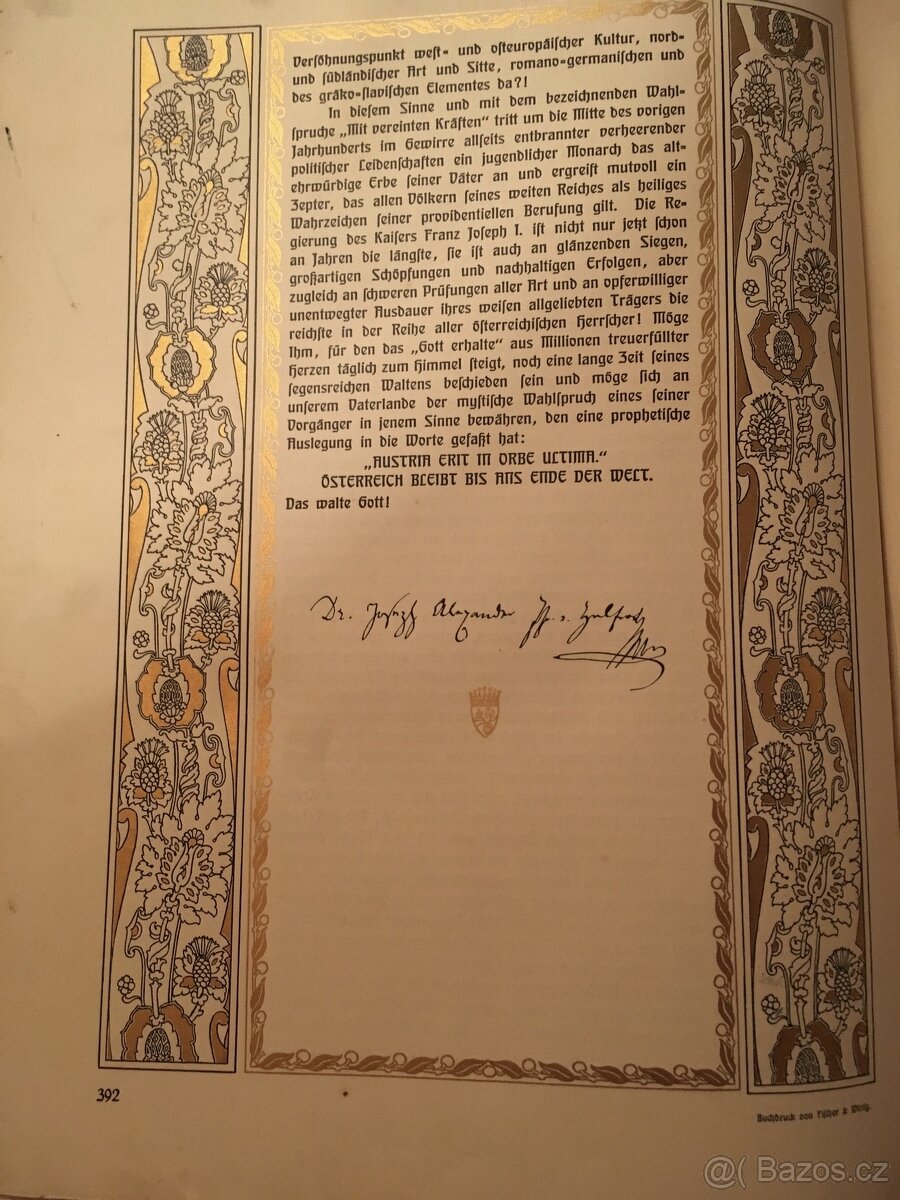 Versöhnungspunkt west- und osteuropäischer Kultur, nord-
und südländischer Art und Sitte, romano-germanischen und
des gräko-slavischen Elementes da?!
In diesem Sinne und mit dem bezeichnenden Wahl-
spruche „Mit vereinten Kräften“ tritt um die Mitte des vorigen
Jahrhunderts im Gewirre allseits entbrannter verheerender
politischer Leidenschaften ein jugendlicher Monarch das alt-
ehrwürdige Erbe seiner Väter an und ergreift mutvoll ein
Zepter, das allen Völkern seines weiten Reiches als heiliges
Wahrzeichen seiner providentiellen Berufung gilt. Die Re-
gierung des Kaisers Franz Joseph I. ist nicht nur jetzt schon
an Jahren die längste, sie ist auch an glänzenden Siegen,
großartigen Schöpfungen und nachhaltigen Erfolgen, aber
zugleich an schweren Prüfungen aller Art und an opferwilliger
unentwegter Ausdauer ihres weisen allgeliebten Trägers die
reichste in der Reihe aller österreichischen Herrscher! Möge
Ihm, für den das „Gott erhalte“ aus Millionen treuerfüllter
Herzen täglich zum Himmel steigt, noch eine lange Zeit seines
segensreichen Waltens beschieden sein und möge sich an
unserem Vaterlande der mystische Wahlspruch eines seiner
Vorgänger in jenem Sinne bewähren, den eine prophetische
Auslegung in die Worte gefaßt hat:
„AUSTRIA ERIT IN ORBE ULTIMA.“
ÖSTERREICH BLEIBT BIS ANS ENDE DER WELT.
Das walte Gott!
Dr. Joseph Alexander
392
Buchdruck von
@( Bazos.cz